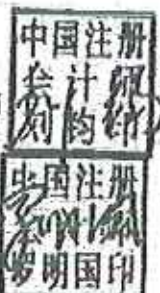 中国注册
会计师
刘均印
中国注册
罗明国印